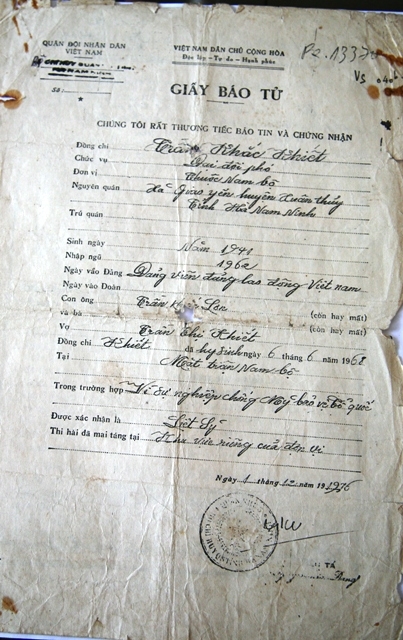 QUÂN ĐỘI NHÂN DÂN
VIỆT NAM
VIỆT NAM DÂN CHỦ CỘNG HÒA
Độc lập - Tự do - Hạnh phúc
Số:
GIẤY BÁO TỬ
CHÚNG TÔI RẤT THƯƠNG TIẾC BÁO TIN VÀ CHỨNG NHẬN
Đồng chí Trần Khắc Khiết
Chức vụ Đại đội phó
Đơn vị Thuộc Nam bộ
Nguyên quán Xã Giao yên huyện Xuân thủy
Trú quán Tỉnh Hà Nam Ninh
Sinh ngày Năm 1941
Nhập ngũ 1962
Ngày vào Đảng Đảng viên đảng lao động Việt nam
Ngày vào Đoàn
Con ông Trần (còn hay mất)
và bà (còn hay mất)
Vợ Trần Thị Khiết
Đồng chí Khiết đã hy sinh ngày 6 tháng 6 năm 1968
Tại Mặt trận Nam bộ
Trong trường hợp Vì sự nghiệp chống Mỹ bảo vệ tổ quốc
Được xác nhận là Liệt sỹ
Thi hài đã mai táng tại Khu vực riêng của đơn vị
Ngày 1 tháng 12 năm 1976